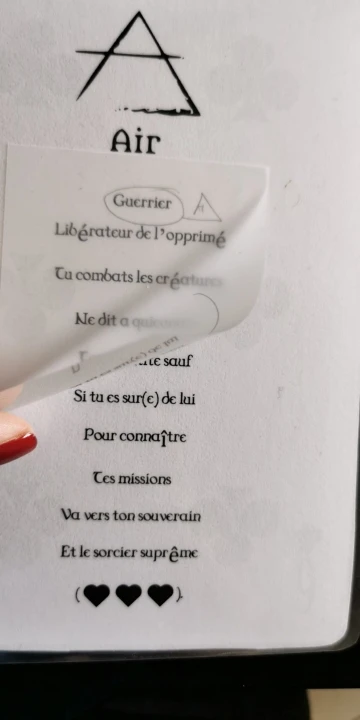 Air
Guerrier A
Libérateur de l'opprimé
Tu combats les créatures
Ne dit a
sauf
Si tu es sur(e) de lui
Pour connaître
Tes missions
Va vers ton souverain
Et le sorcier suprême
(♥ ♥ ♥).